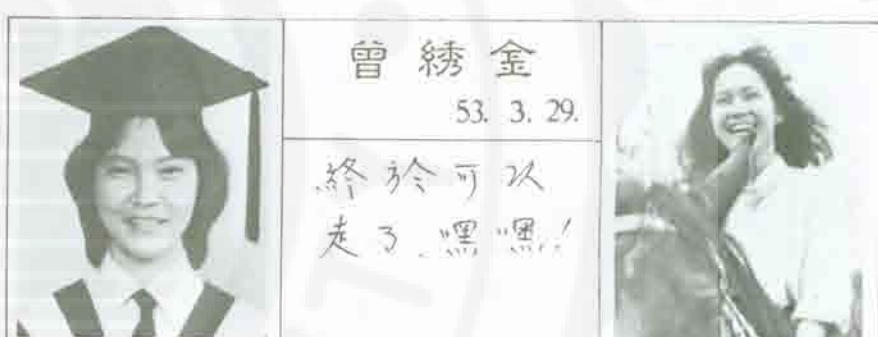 曾綉金
53. 3. 29.
終於可以
走了.嘿嘿!